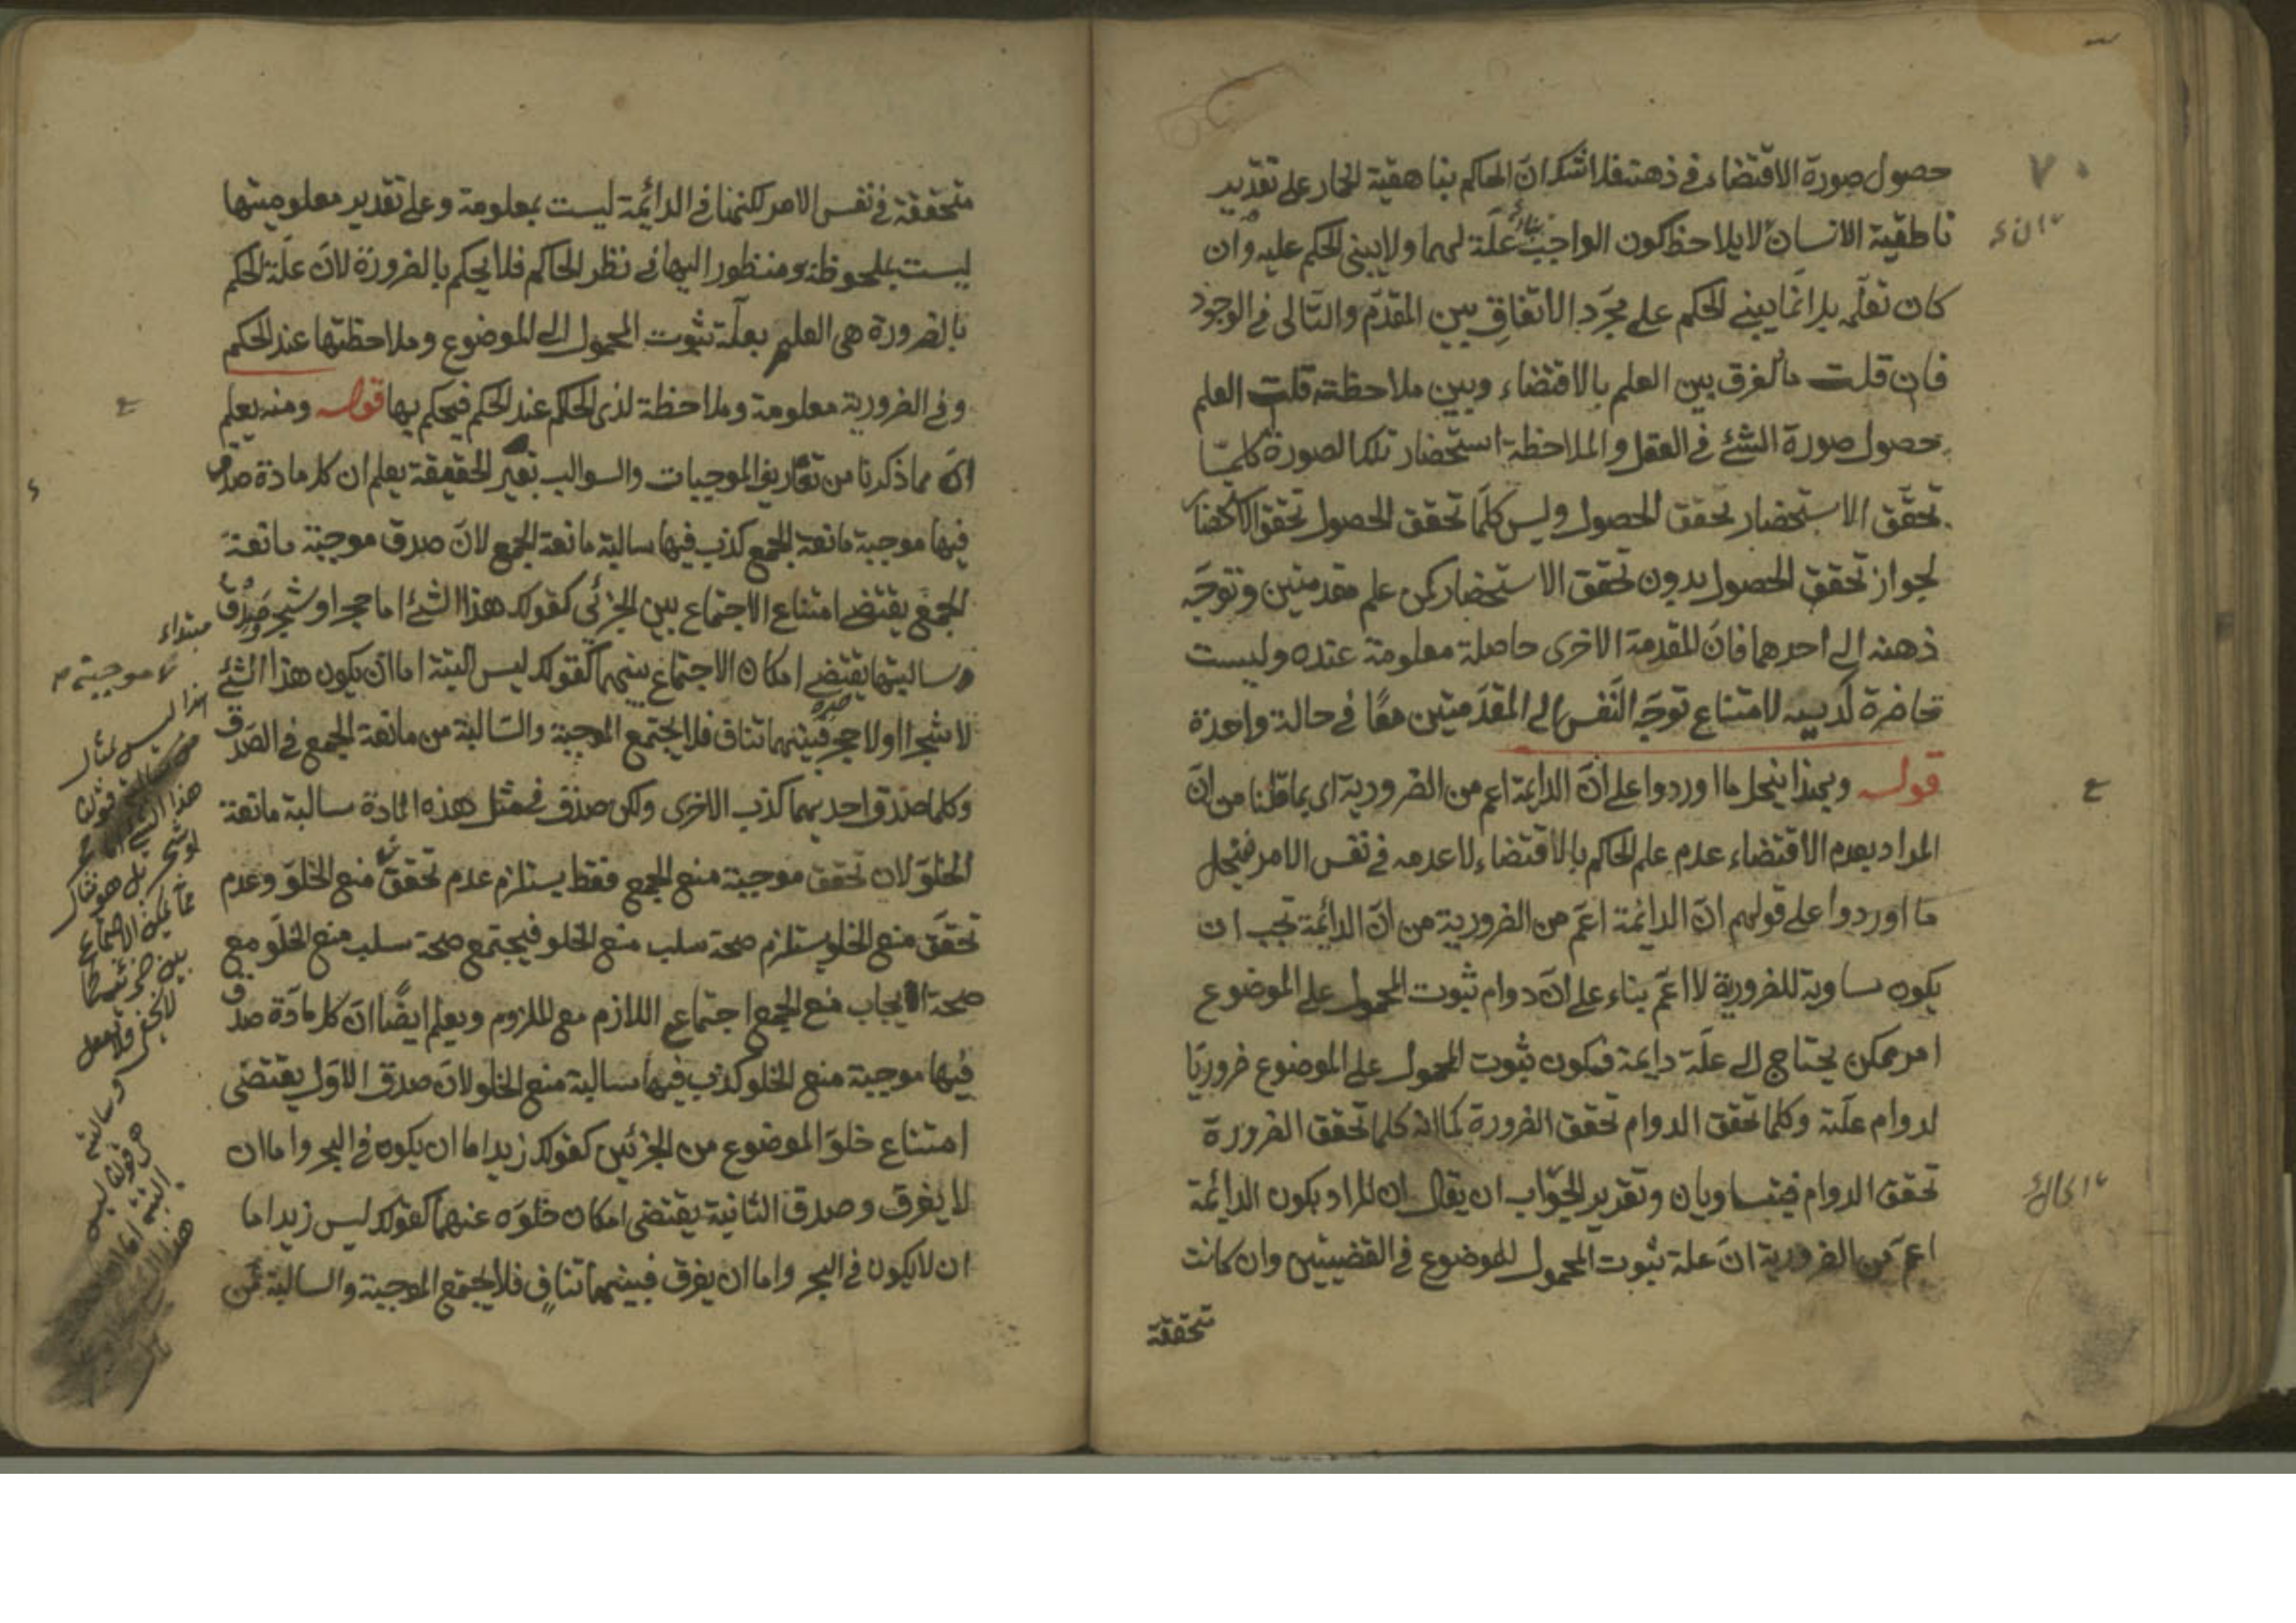 حصول صورة الاقتضاء في ذهنه فلا شك ان الحاكم بناهقية الحمار على تقدير
ناطقية الانسان لا يلاحظ كون الواجب علة لهما ولا يبني الحكم عليه وان
كان تعلمه بل انما يبني الحكم على مجرد الاتفاق بين المقدم والتالى في الوجود
فان قلت ما الفرق بين العلم بالاقتضاء وبين ملاحظته قلت العلم
حصول صورة الشئ في العقل والملاحظة استحضار تلك الصورة كلما
تحقق الاستحضار تحقق الحصول وليس كلما تحقق الحصول تحقق الاستحضار
لجواز تحقق الحصول بدون تحقق الاستحضار كمن علم مقدمتين وتوجه
ذهنه الى احدهما فان المقدمة الاخرى حاصلة معلومة عنده وليست
حاضرة لديه لامتناع توجه النفس الى المقدمتين معًا في حالة واحدة
قوله وبهذا ينحل ما اوردوا على ان الدائمة اعم من الضرورية اى بما قلنا من ان
المراد بعدم الاقتضاء عدم علم الحاكم بالاقتضاء لا عدمه في نفس الامر ينحل
ما اوردوا على قولهم ان الدائمة اعم من الضرورية من ان الدائمة تجب ان
يكون مساوية للضرورية لا اعم بناء على ان دوام ثبوت المحمول على الموضوع
امر ممكن يحتاج الى علة دايمة فيكون ثبوت المحمول على الموضوع ضروريًا
لدوام علته وكلما تحقق الدوام تحقق الضرورة كما انه كلما تحقق الضرورة
تحقق الدوام فيتساويان وتقدير الجواب ان يقال ان المراد بكون الدائمة
اعم من الضرورية ان علة ثبوت المحمول للموضوع في القضيتين وان كانت
متحققة
متحققة في نفس الامر لكنها في الدائمة ليست بمعلومة وعلى تقدير معلوميتها
ليست بملحوظة ومنظور اليها في نظر الحاكم فلا يحكم بالضرورة لان علة الحكم
بالضرورة هى العلم بعلة ثبوت المحمول الى الموضوع وملاحظتها عند الحكم
وفي الضرورية معلومة وملاحظة لذى الحكم عند الحكم فيحكم بها قوله ومنه يعلم
ان مما ذكرنا من تعاريف الموجبات والسوالب بغير الحقيقة يعلم ان كل مادة صدق
فيها موجبة مانعة الجمع كذب فيها سالبة مانعة الجمع لان صدق موجبة مانعة
الجمع يقتضى امتناع الاجتماع بين الجزئى كقولك هذا الشئ اما حجر او شجر وصدق
سالبتها يقتضى امكان الاجتماع بينهما كقولك ليس البتة اما ان يكون هذا الشئ
لا شجرا او لا حجر فبينهما تناف فلا يجتمع الموجبة والسالبة من مانعة الجمع في الصدق
وكلما صدق احديهما كذب الاخرى ولكن صدق في مثل هذه المادة سالبة مانعة
الخلو لان تحقق موجبة منع الجمع فقط يستلزم عدم تحقق منع الخلو وعدم
تحقق منع الخلو يستلزم صحة سلب منع الخلو فيجتمع صحة سلب منع الخلو مع
صحة الايجاب منع الجمع اجتماع اللازم مع الملزوم ويعلم ايضًا ان كل مادة صدق
فيها موجبة منع الخلو كذب فيها سالبة منع الخلو لان صدق الاول يقتضى
امتناع خلو الموضوع من الجزئين كقولك زيد اما ان يكون في البحر واما ان
لا يغرق وصدق الثانية يقتضى امكان خلوه عنهما كقولك ليس زيد اما
ان لا يكون في البحر واما ان يغرق فبينهما تناف فلا يجتمع الموجبة والسالبة من
مبتداء
موجبته
هذا ليس بمثال
هذا الشئ اما حجر
او شجر بل هو مثال
بين جزئيهما